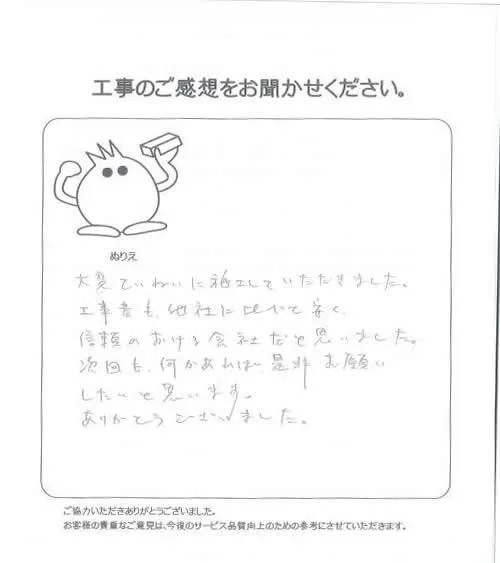 工事のご感想をお聞かせください。
ぬりえ
大変ていねいに施工していただきました。
工事費も、他社に比べて安く、
信頼のおける会社だと思いました。
次回も、何かあれば、是非お願い
したいと思います。
ありがとうございました。
ご協力いただきありがとうございました。
お客様の貴重なご意見は、今後のサービス品質向上のための参考にさせていただきます。